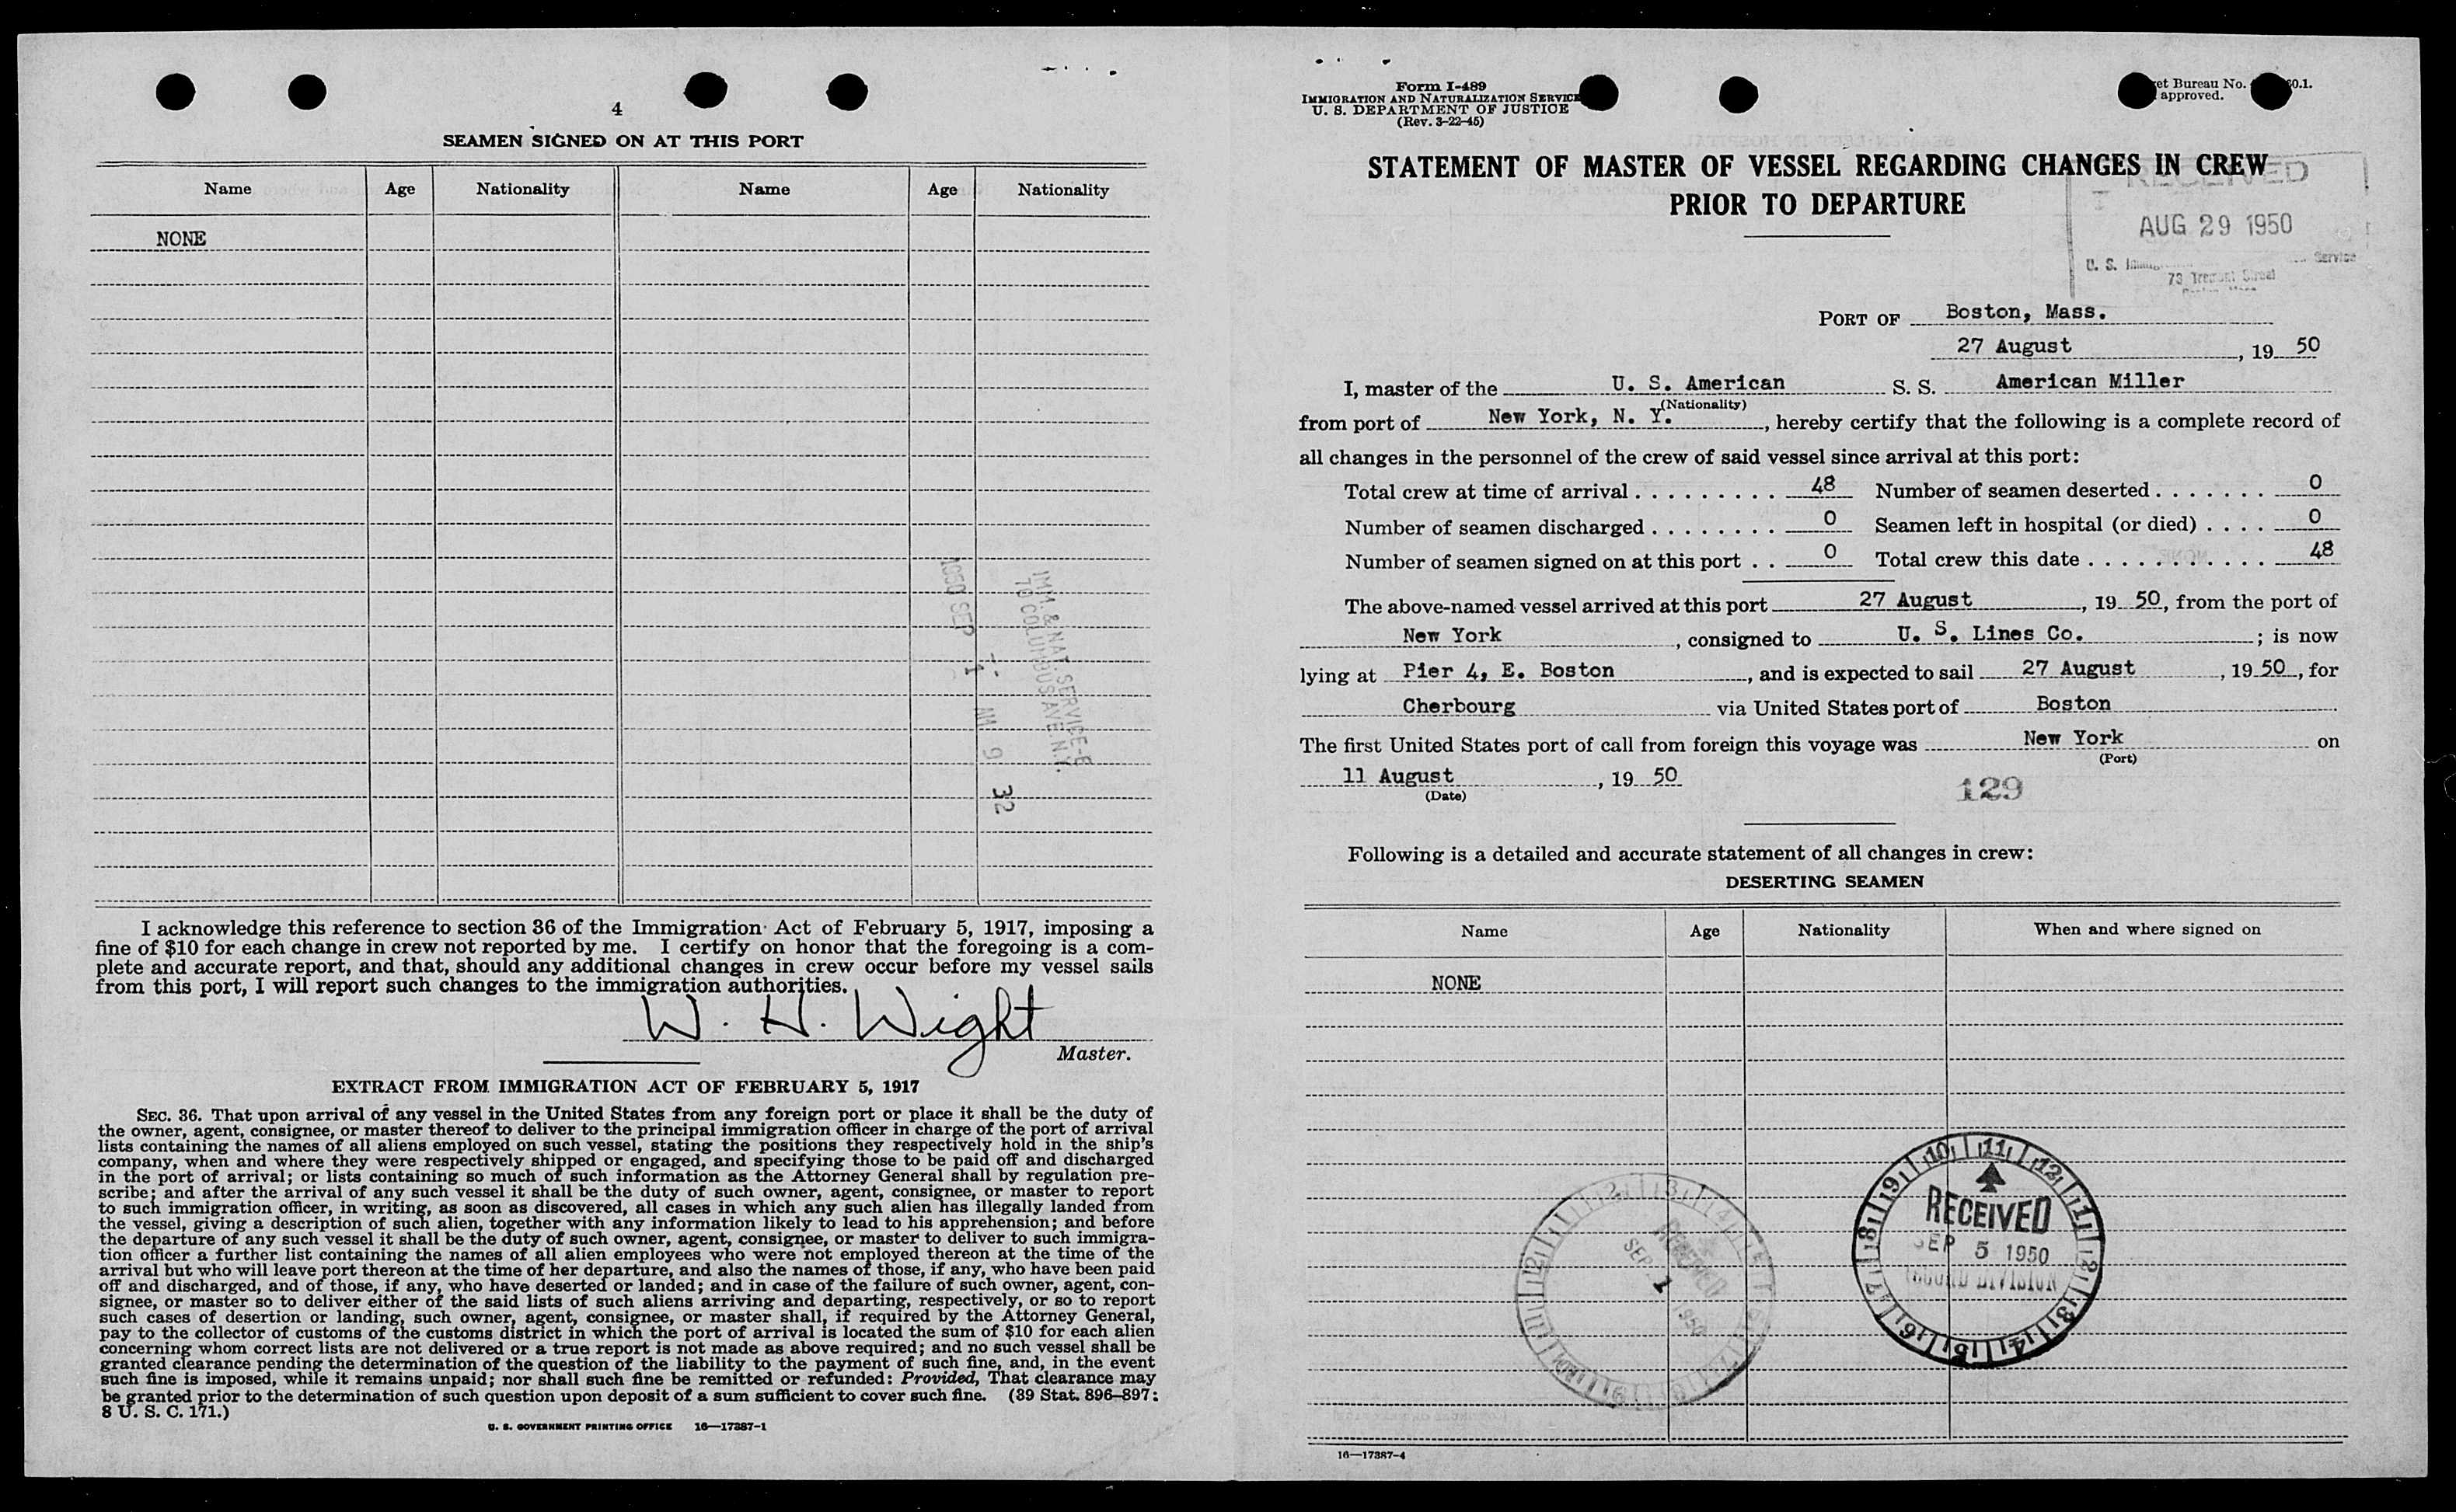 4
SEAMEN SIGNED ON AT THIS PORT
Name Age Nationality Name Age Nationality
NONE
1950 SEP 1 AM 9 32
IMM. & NAT. SERVICE-E
70 COLUMBUS AVE N.Y.
I acknowledge this reference to section 36 of the Immigration Act of February 5, 1917, imposing a
fine of $10 for each change in crew not reported by me. I certify on honor that the foregoing is a com-
plete and accurate report, and that, should any additional changes in crew occur before my vessel sails
from this port, I will report such changes to the immigration authorities.
W. H. Wight
Master.
EXTRACT FROM IMMIGRATION ACT OF FEBRUARY 5, 1917
SEC. 36. That upon arrival of any vessel in the United States from any foreign port or place it shall be the duty of
the owner, agent, consignee, or master thereof to deliver to the principal immigration officer in charge of the port of arrival
lists containing the names of all aliens employed on such vessel, stating the positions they respectively hold in the ship's
company, when and where they were respectively shipped or engaged, and specifying those to be paid off and discharged
in the port of arrival; or lists containing so much of such information as the Attorney General shall by regulation pre-
scribe; and after the arrival of any such vessel it shall be the duty of such owner, agent, consignee, or master to report
to such immigration officer, in writing, as soon as discovered, all cases in which any such alien has illegally landed from
the vessel, giving a description of such alien, together with any information likely to lead to his apprehension; and before
the departure of any such vessel it shall be the duty of such owner, agent, consignee, or master to deliver to such immigra-
tion officer a further list containing the names of all alien employees who were not employed thereon at the time of the
arrival but who will leave port thereon at the time of her departure, and also the names of those, if any, who have been paid
off and discharged, and of those, if any, who have deserted or landed; and in case of the failure of such owner, agent, con-
signee, or master so to deliver either of the said lists of such aliens arriving and departing, respectively, or so to report
such cases of desertion or landing, such owner, agent, consignee, or master shall, if required by the Attorney General,
pay to the collector of customs of the customs district in which the port of arrival is located the sum of $10 for each alien
concerning whom correct lists are not delivered or a true report is not made as above required; and no such vessel shall be
granted clearance pending the determination of the question of the liability to the payment of such fine, and, in the event
such fine is imposed, while it remains unpaid; nor shall such fine be remitted or refunded: Provided, That clearance may
be granted prior to the determination of such question upon deposit of a sum sufficient to cover such fine. (39 Stat. 896–897;
8 U. S. C. 171.)
U. S. GOVERNMENT PRINTING OFFICE 16—17387-1
Form I-489
IMMIGRATION AND NATURALIZATION SERVICE
U. S. DEPARTMENT OF JUSTICE
(Rev. 3-22-45)
Bureau No.
approved.
STATEMENT OF MASTER OF VESSEL REGARDING CHANGES IN CREW
PRIOR TO DEPARTURE
RECEIVED
AUG 29 1950
U. S. Service
73 Tremont Street
PORT OF Boston, Mass.
27 August, 19 50
I, master of the U. S. American S. S. American Miller
(Nationality)
from port of New York, N. Y., hereby certify that the following is a complete record of
all changes in the personnel of the crew of said vessel since arrival at this port:
Total crew at time of arrival 48 Number of seamen deserted 0
Number of seamen discharged 0 Seamen left in hospital (or died) 0
Number of seamen signed on at this port 0 Total crew this date 48
The above-named vessel arrived at this port 27 August, 19 50, from the port of
New York, consigned to U. S. Lines Co.; is now
lying at Pier 4, E. Boston, and is expected to sail 27 August, 19 50, for
Cherbourg via United States port of Boston
The first United States port of call from foreign this voyage was New York on
(Port)
11 August, 19 50
(Date)
129
Following is a detailed and accurate statement of all changes in crew:
DESERTING SEAMEN
Name Age Nationality When and where signed on
NONE
RECEIVED
SEP 1 1950
RECEIVED
SEP 5 1950
DIVISION
16—17387-4